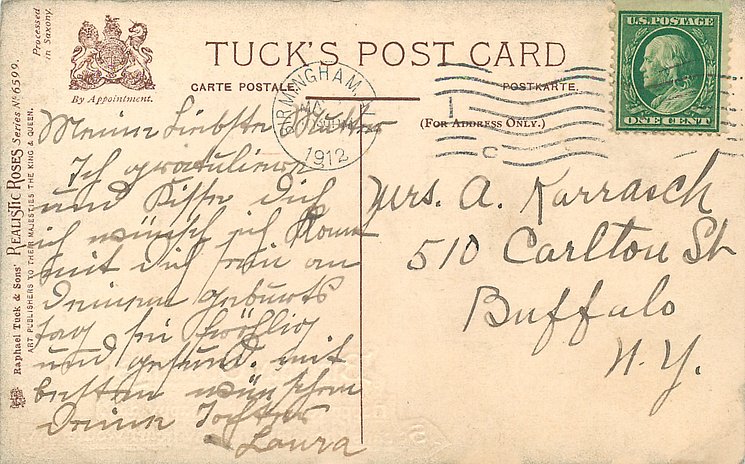 Processed
in Saxony.
By Appointment.
TUCK'S POST CARD
CARTE POSTALE.
POSTKARTE.
(FOR ADDRESS ONLY.)
Raphael Tuck & Sons' REALISTIC ROSES Series No 6599.
ART PUBLISHERS TO THEIR MAJESTIES THE KING & QUEEN.
BIRMINGHAM
1912
U.S. POSTAGE
ONE CENT
Meine Liebste Mutter
Ich gratuliere
und Kisse Dich
ich wünsch ich Konn
mit Dich sein an
Deinem geburts
tag sei fröhlig
und gesund. mit
besten wünschen
Deine Tochter
Laura
Mrs. A. Karrasch
510 Carlton St
Buffalo
N.Y.